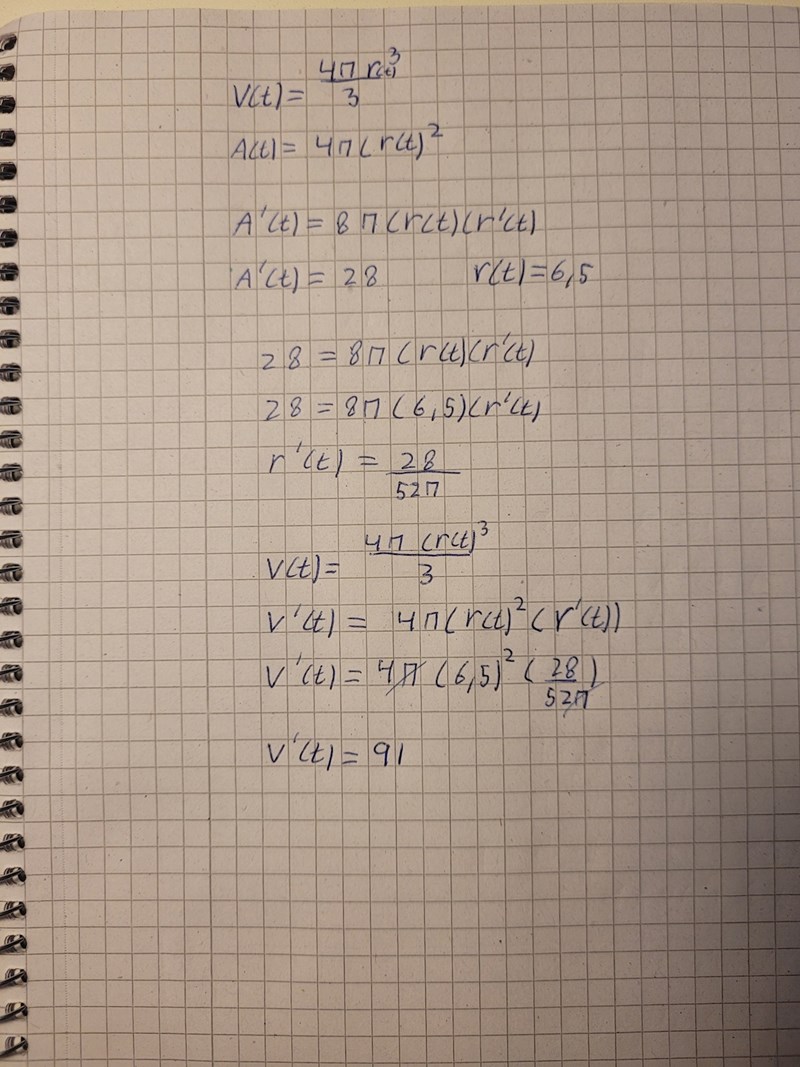 V(t) = 4π r(t)³ / 3
A(t) = 4π(r(t)²
A'(t) = 8π(r(t)(r'(t)
A'(t) = 28 r(t) = 6,5
28 = 8π(r(t)(r'(t)
28 = 8π(6,5)(r'(t)
r'(t) = 28 / 52π
V(t) = 4π (r(t)³ / 3
V'(t) = 4π(r(t)²(r'(t))
V'(t) = 4π(6,5)²(28 / 52π)
V'(t) = 91